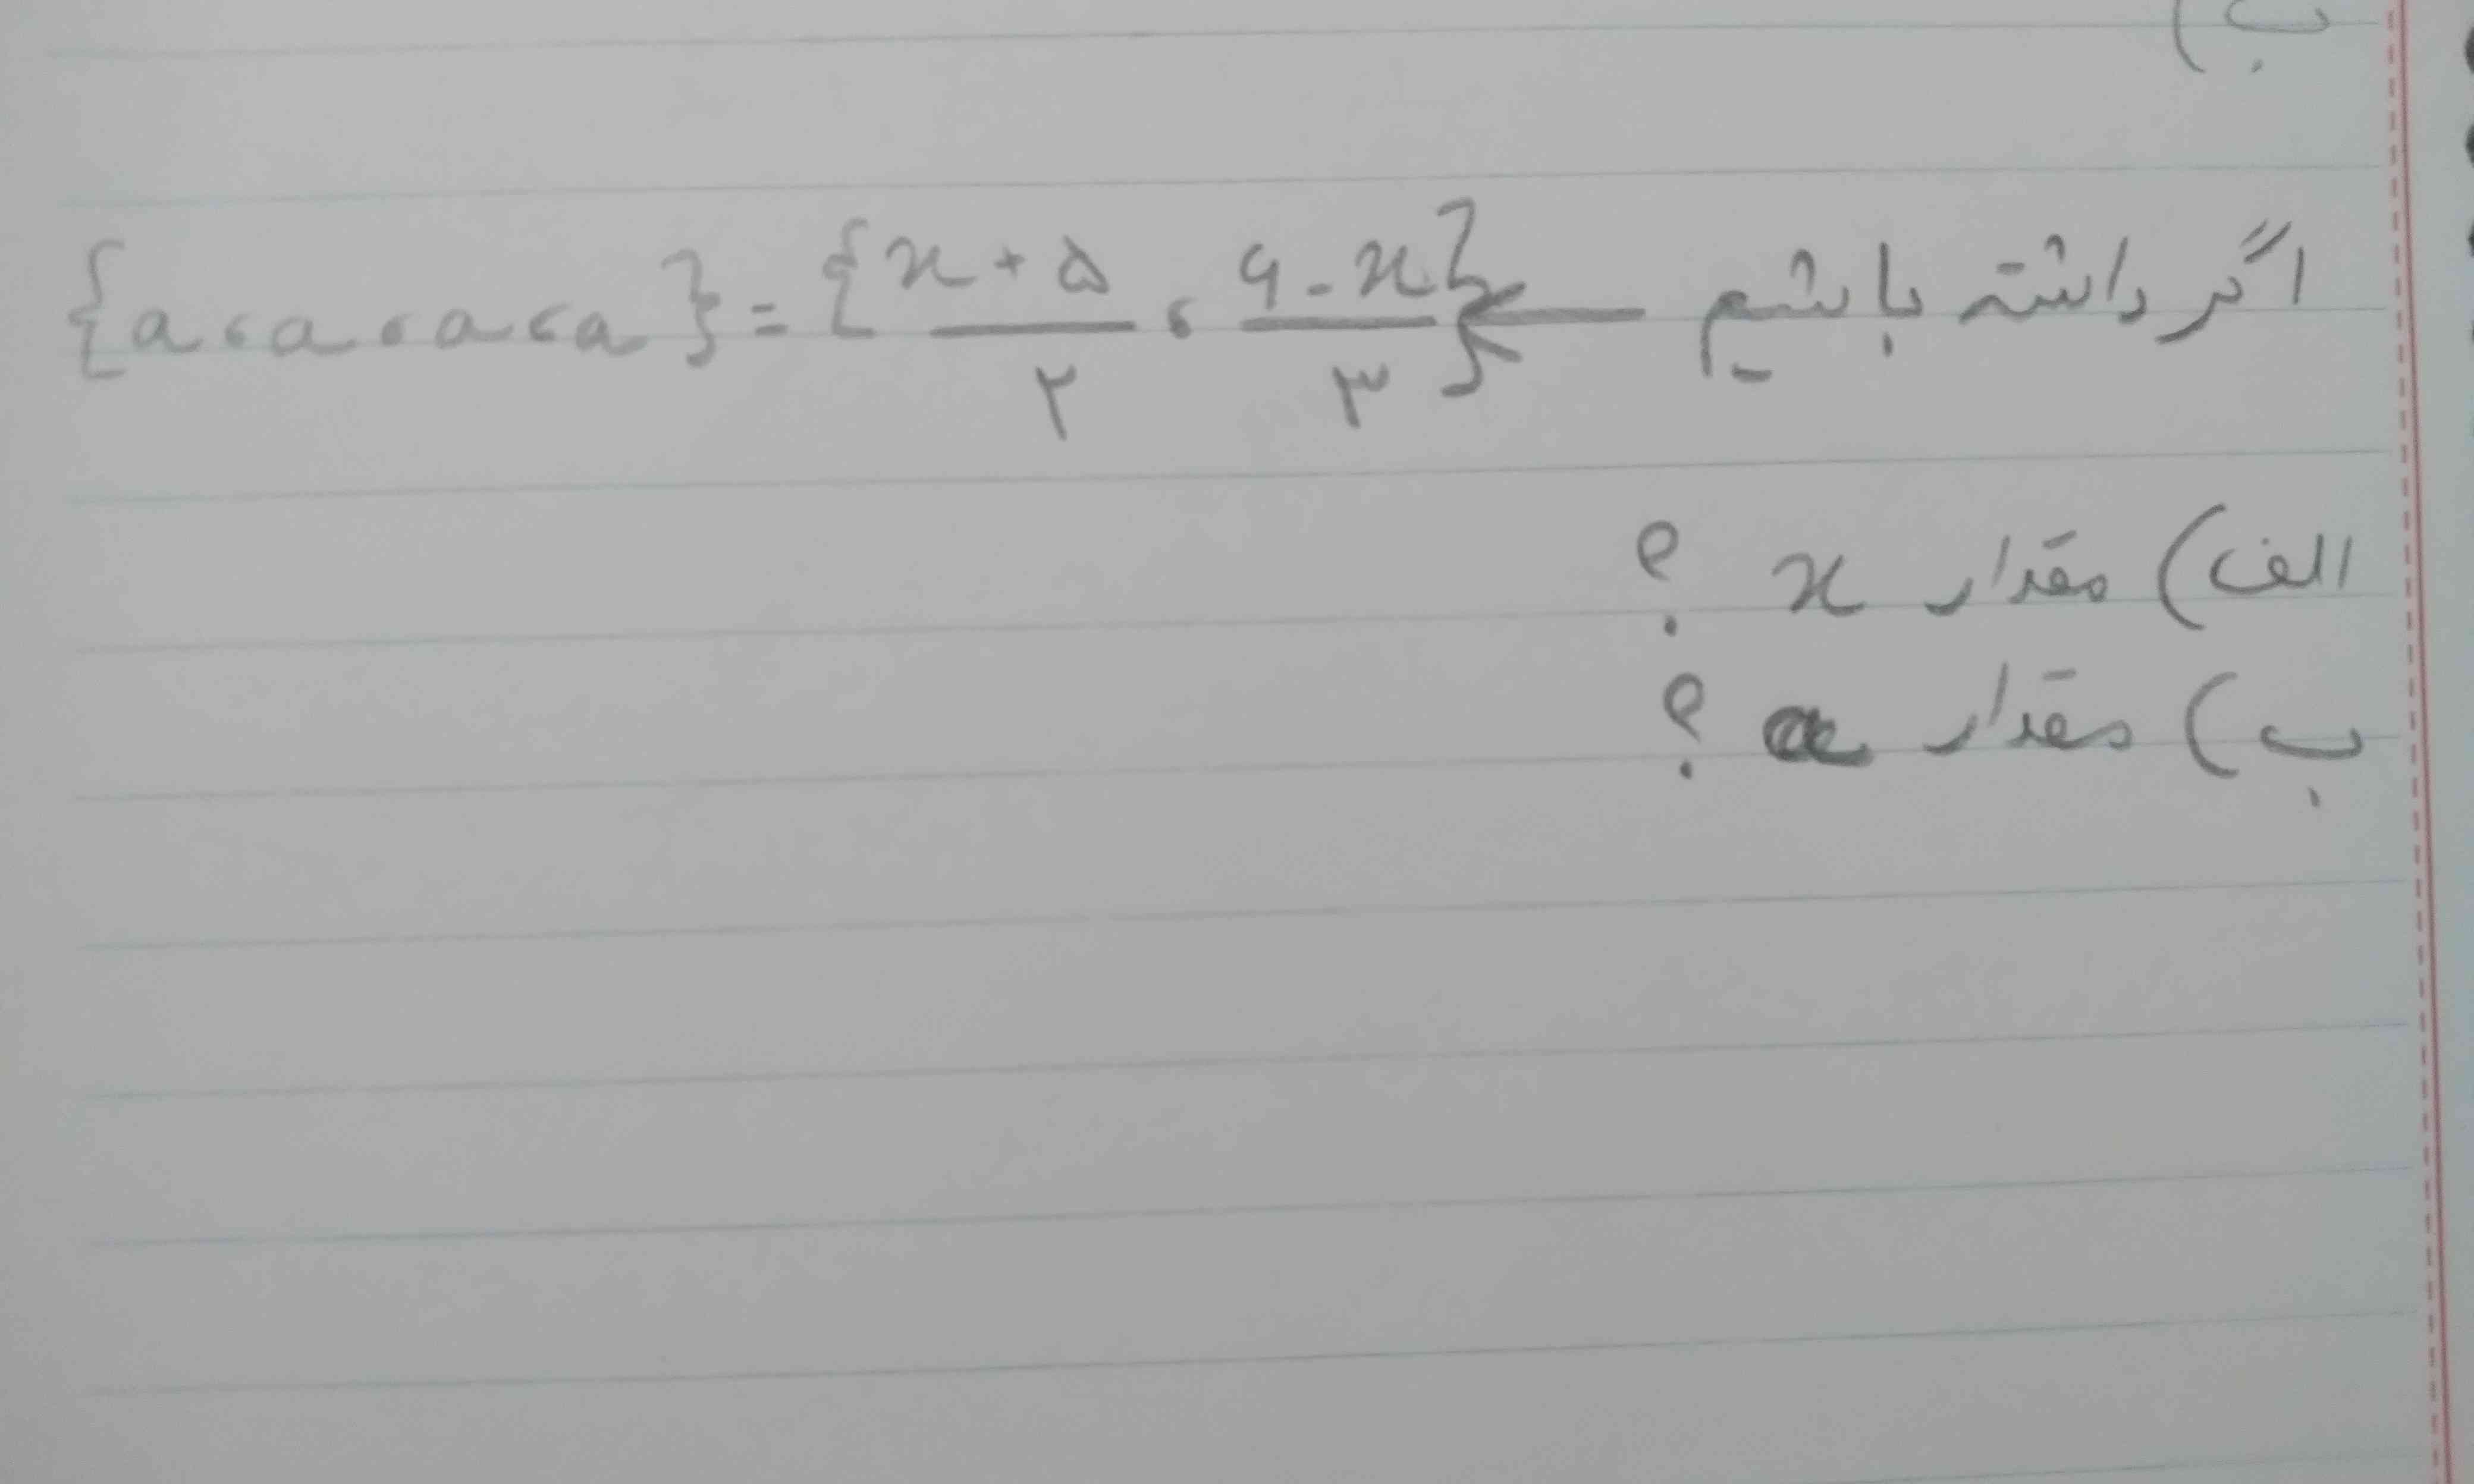 ب)
اگر داشته باشیم ← {a، a، a، a} = {(x + ۵)/۲ ، (۹ - x)/۳}
الف) مقدار x ؟
ب) مقدار a ؟